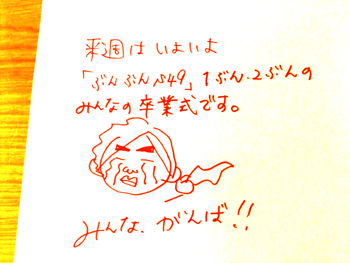 来週は いよいよ
「ぶんぶんパ49」1ぶん・2ぶんの
みんなの卒業式です。
みんな、がんば!!